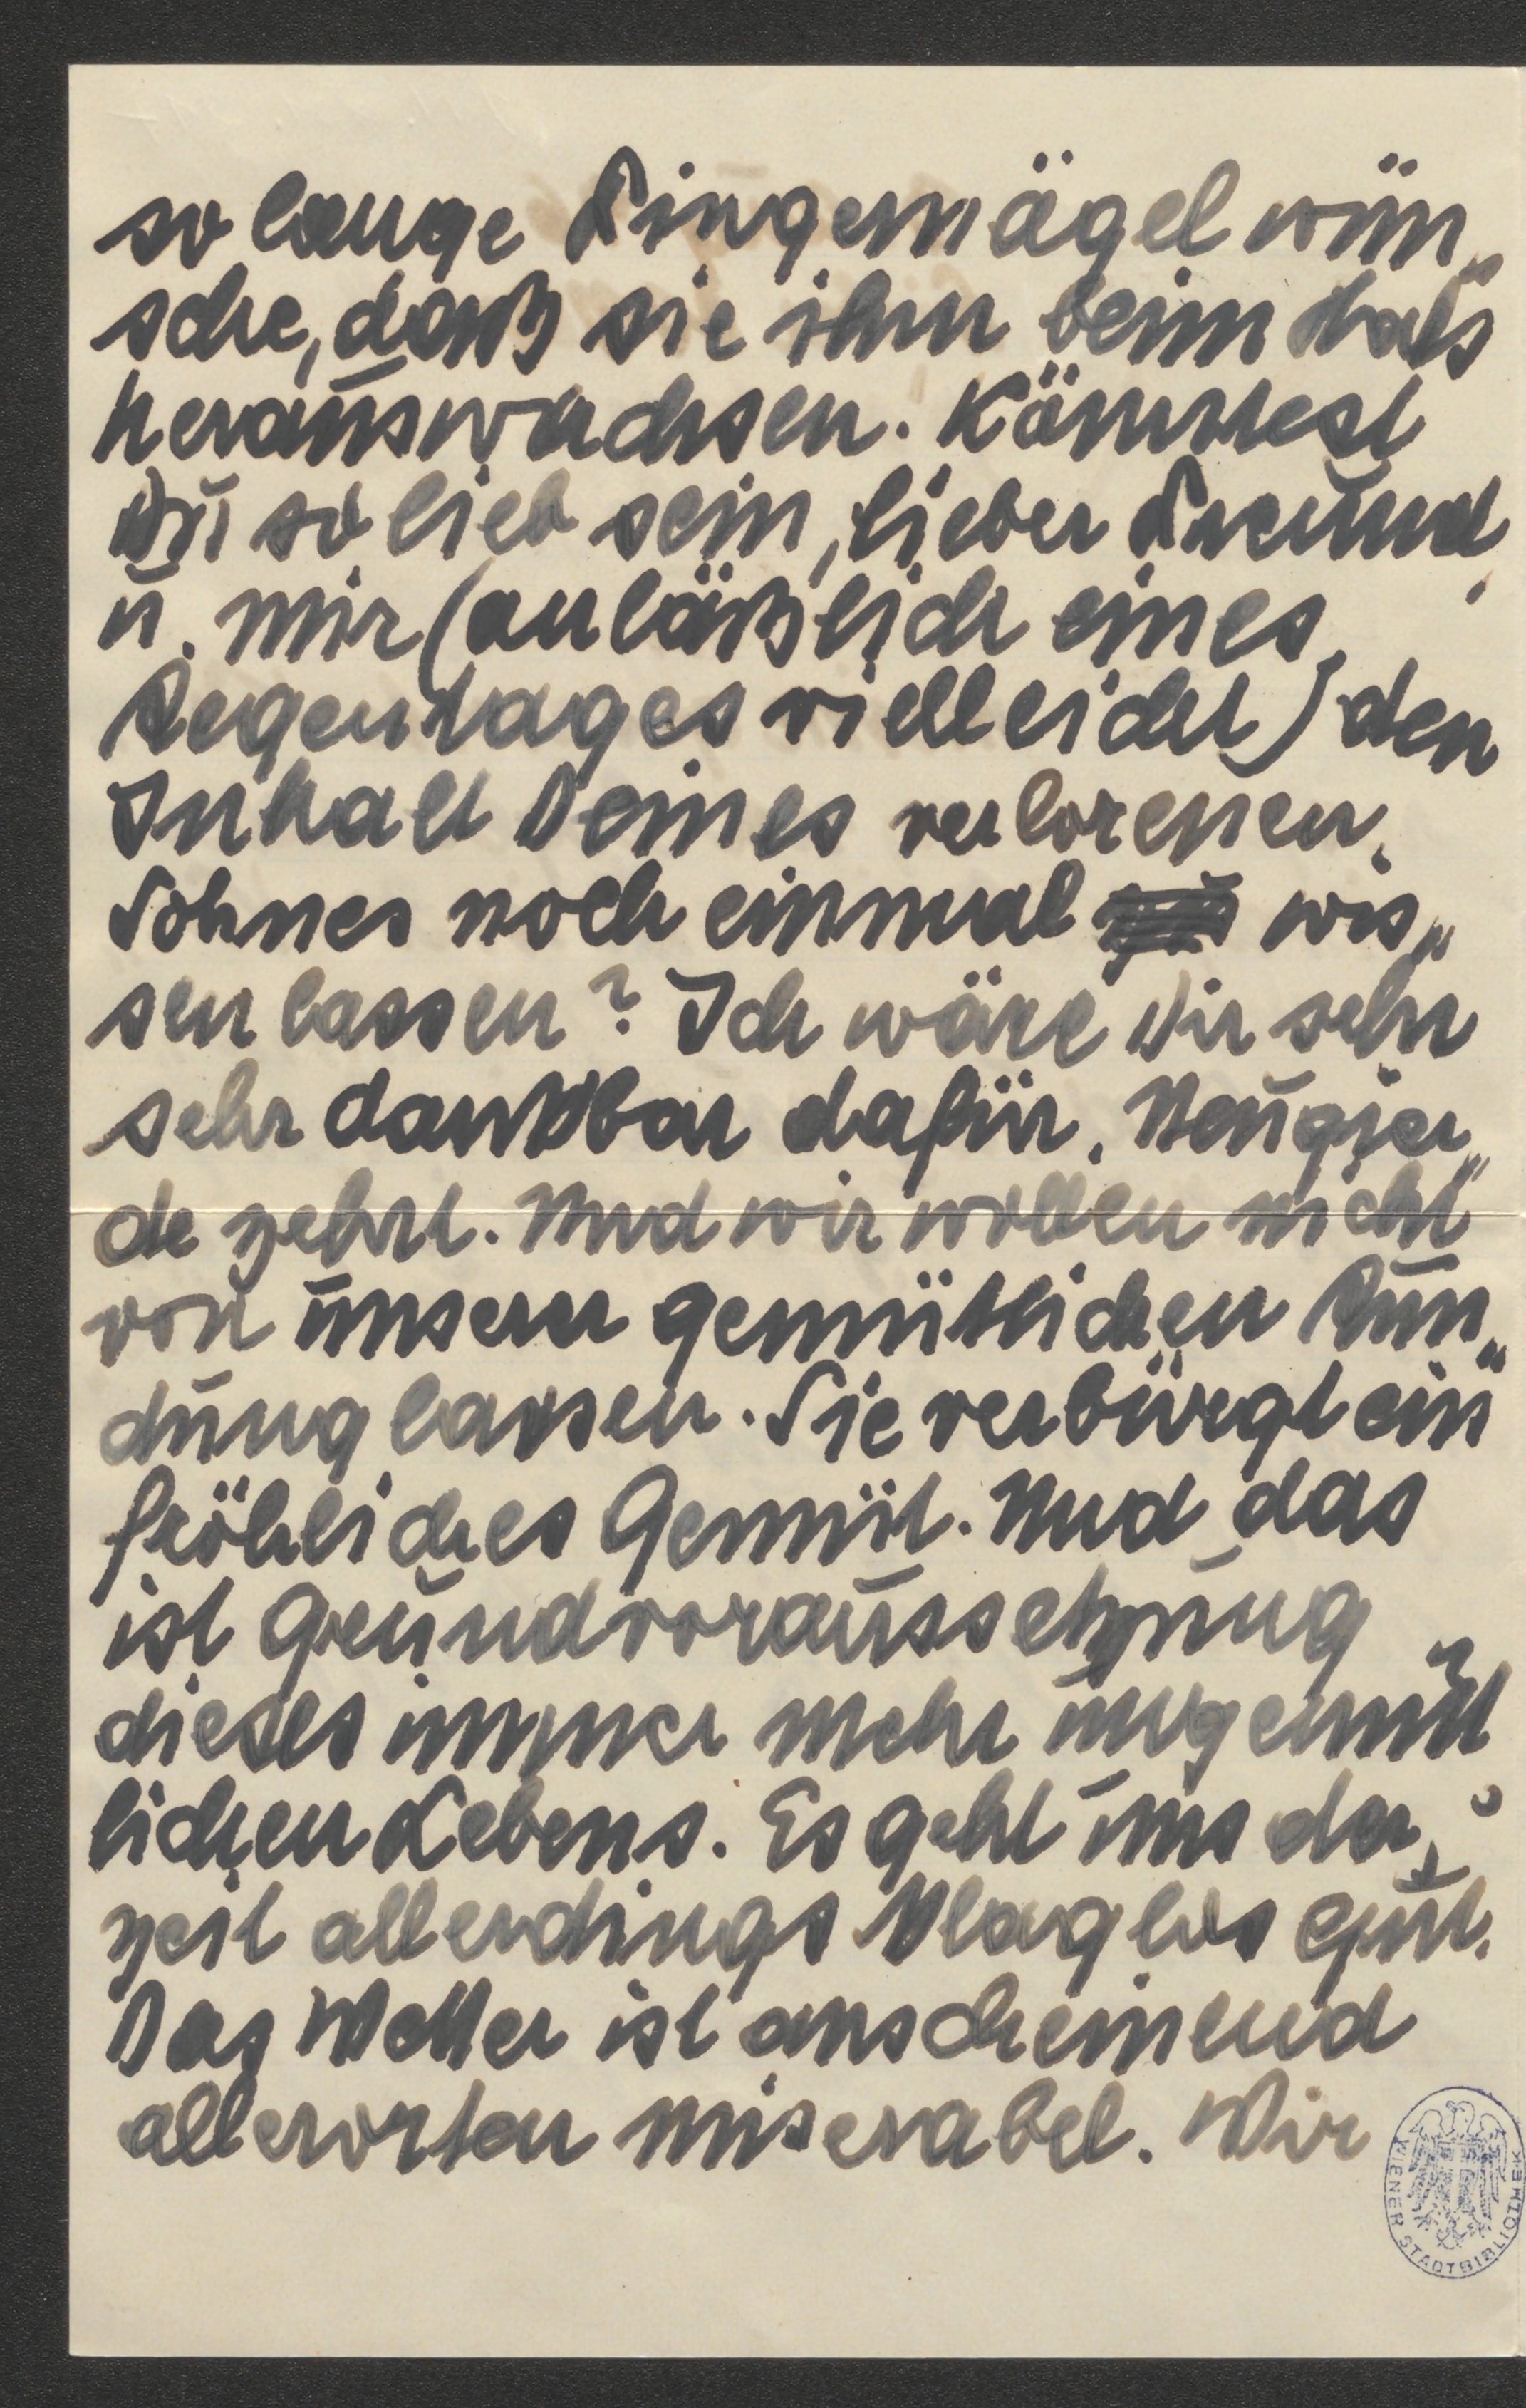 so lange Fingernägel wün„
sche, daß sie ihm beim Hals
herauswachsen. Könntest
Du so lieb sein, lieber Freund,
u. mir (anläßlich eines
Regentages vielleicht) den
Inhalt Deines verlorenen
Sohnes noch einmal wis„
sen lassen? Ich wäre Dir sehr
sehr dankbar dafür. Neugier„
de zehrt. Und wir wollen nicht
von unserer gemütlichen Run„
dung lassen. Sie verbürgt ein
fröhliches Gemüt. Und das
ist Grundvoraussetzung
dieses immer mehr ungemüt
lichen Lebens. Es geht uns der„
zeit allerdings klaglos gut.
Das Wetter ist anscheinend
allerorten miserabel. Wir
WIENER STADTBIBLIOTHEK